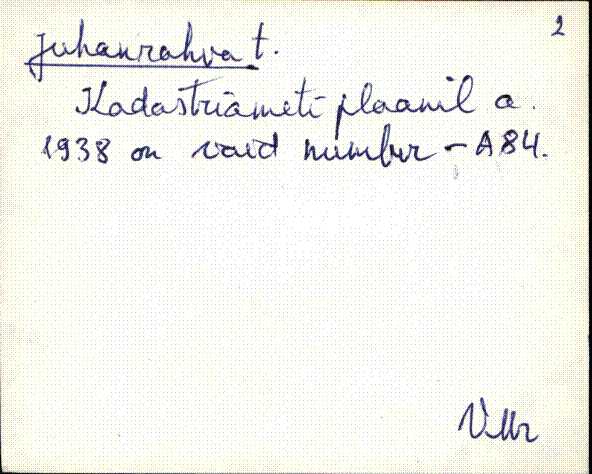 2
Juhanrahva t.
Kadastriameti plaanil a.
1938 on vaid number - A84.